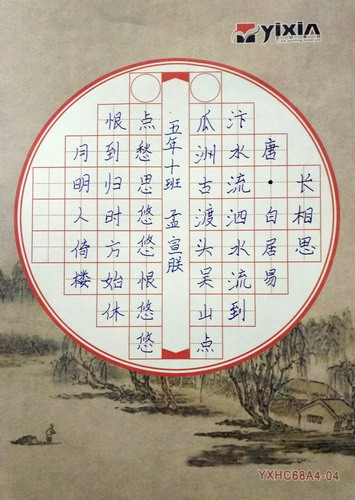 yixin
长相思
唐·白居易
汴水流泗水流到
瓜洲古渡头吴山点
五年十班 孟宣朕
点愁思悠悠恨悠悠
恨到归时方始休
月明人倚楼
YXHC68A4-04